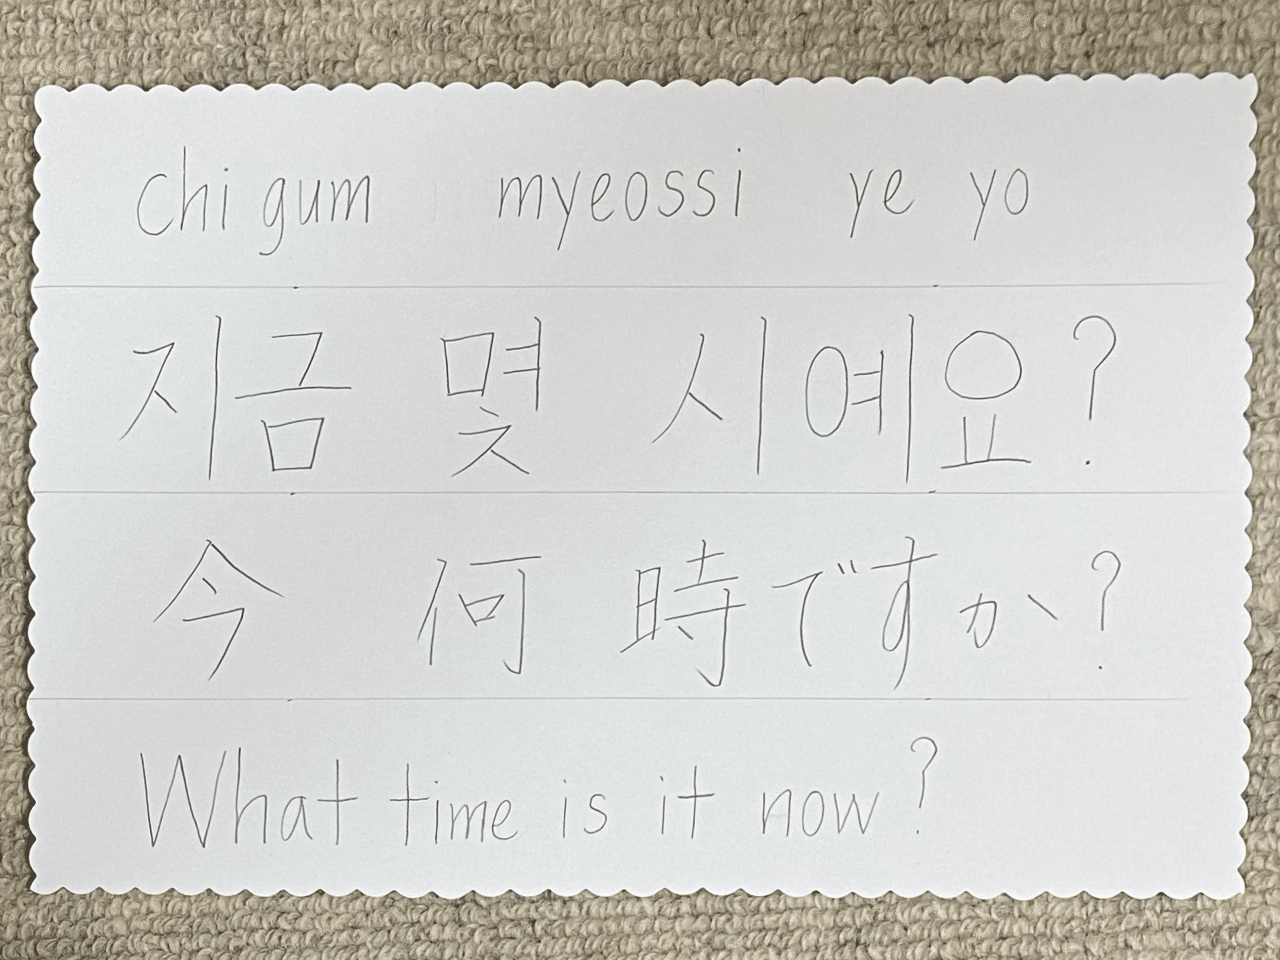 chi gum myeossi ye yo
지금 몇 시예요?
今 何 時ですか?
What time is it now?